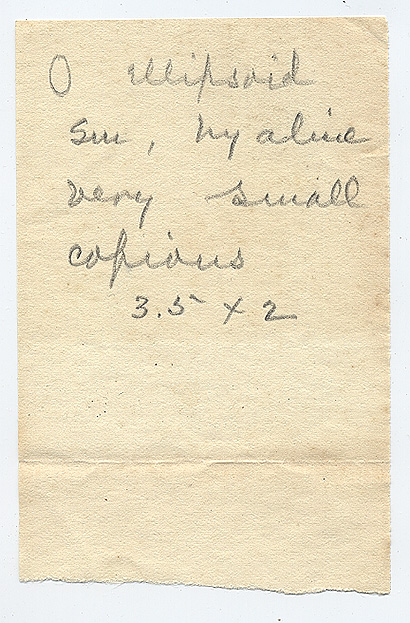 ellipsoid
sm, hyaline
very small
copious
3.5 x 2